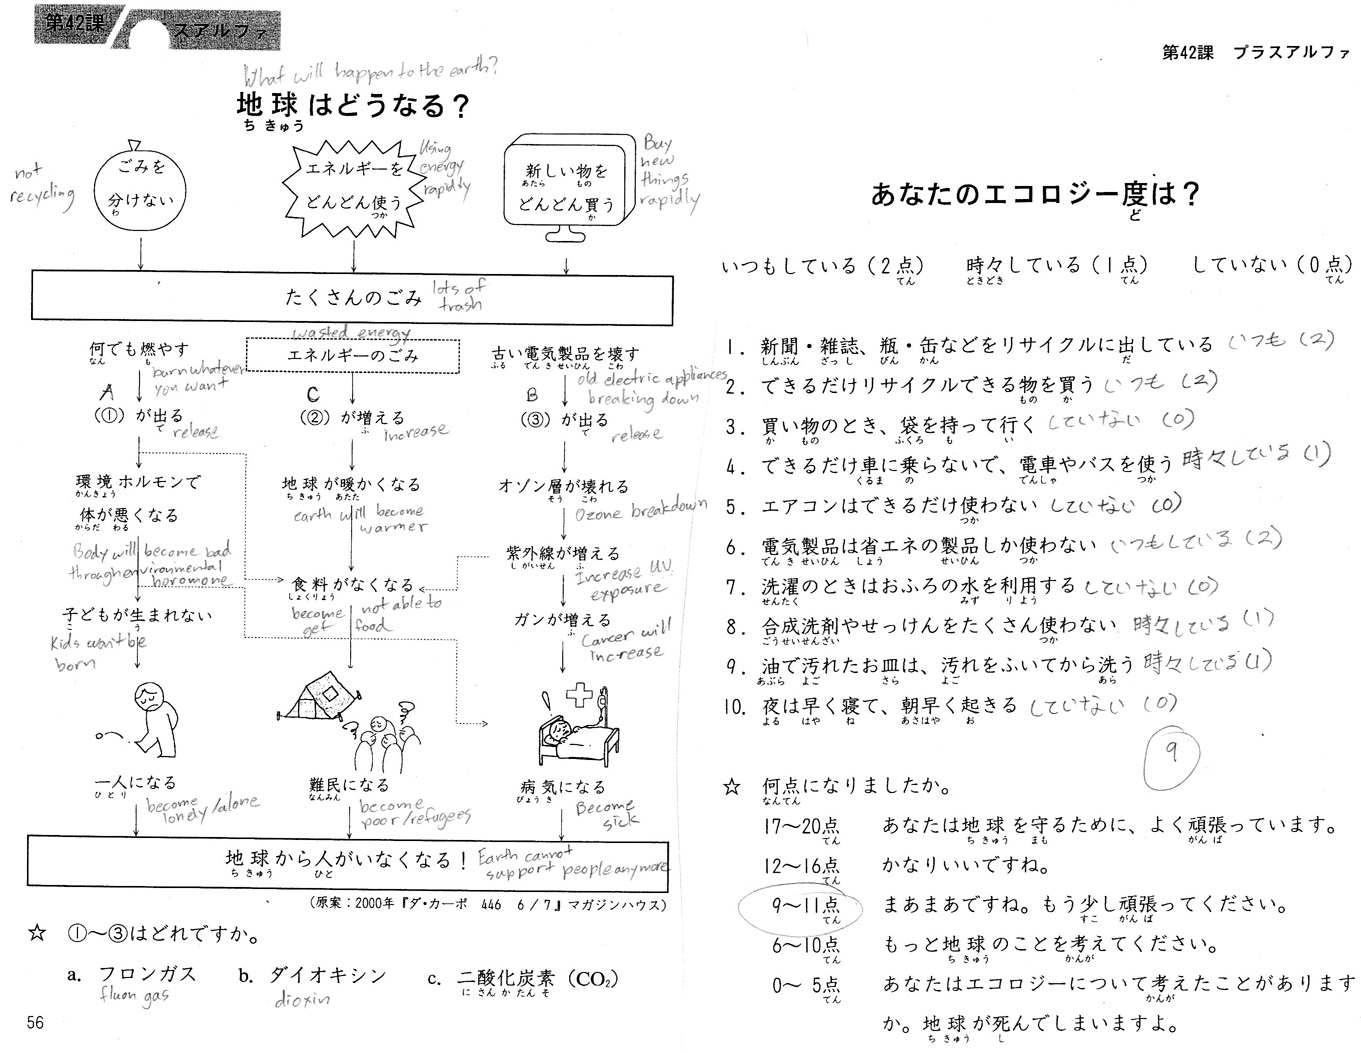 第42課
スアルファ
What will happen to the earth?
地球はどうなる？
ちきゅう
not recycling
ごみを
分けない
わ
エネルギーを
どんどん使う
つか
Using energy rapidly
新しい物を
あたら もの
どんどん買う
か
Buy new things rapidly
たくさんのごみ
lots of trash
何でも燃やす
なん も
burn whatever you want
wasted energy
エネルギーのごみ
古い電気製品を壊す
ふる でんきせいひん こわ
old electric appliances breaking down
A
（①）が出る
で
release
C
（②）が増える
ふ
increase
B
（③）が出る
で
release
環境ホルモンで
かんきょう
体が悪くなる
からだ わる
Body will become bad
through environmental
horomone
地球が暖かくなる
ちきゅう あたた
earth will become warmer
オゾン層が壊れる
そう こわ
Ozone breakdown
紫外線が増える
しがいせん ふ
Increase U.V. exposure
食料がなくなる
しょくりょう
become not able to get food
子どもが生まれない
こ う
Kids won't be born
ガンが増える
ふ
Cancer will increase
一人になる
ひとり
become lonely/alone
難民になる
なんみん
become poor/refugees
病気になる
びょうき
Become sick
地球から人がいなくなる！
ちきゅう ひと
Earth cannot support people anymore
（原案：2000年『ダ・カーポ 446 6／7』マガジンハウス）
☆ ①〜③はどれですか。
a. フロンガス b. ダイオキシン c. 二酸化炭素（CO₂）
にさんかたんそ
fluon gas dioxin
56
第42課 プラスアルファ
あなたのエコロジー度は？
ど
いつもしている（2点） 時々している（1点） していない（0点）
てん ときどき てん てん
1. 新聞・雑誌、瓶・缶などをリサイクルに出している いつも (2)
しんぶん ざっし びん かん だ
2. できるだけリサイクルできる物を買う いつも (2)
もの か
3. 買い物のとき、袋を持って行く していない (0)
か もの ふくろ も い
4. できるだけ車に乗らないで、電車やバスを使う 時々している (1)
くるま の でんしゃ つか
5. エアコンはできるだけ使わない していない (0)
つか
6. 電気製品は省エネの製品しか使わない いつもしている (2)
でんきせいひん しょう せいひん つか
7. 洗濯のときはおふろの水を利用する していない (0)
せんたく みず りよう
8. 合成洗剤やせっけんをたくさん使わない 時々している (1)
ごうせいせんざい つか
9. 油で汚れたお皿は、汚れをふいてから洗う 時々している (1)
あぶら よご さら よご あら
10. 夜は早く寝て、朝早く起きる していない (0)
よる はや ね あさはや お
9
☆ 何点になりましたか。
なんてん
17〜20点 あなたは地球を守るために、よく頑張っています。
てん ちきゅう まも がんば
12〜16点 かなりいいですね。
てん
9〜11点 まあまあですね。もう少し頑張ってください。
てん すこ がんば
6〜10点 もっと地球のことを考えてください。
てん ちきゅう かんが
0〜 5点 あなたはエコロジーについて考えたことがあります
てん かんが
か。地球が死んでしまいますよ。
ちきゅう し